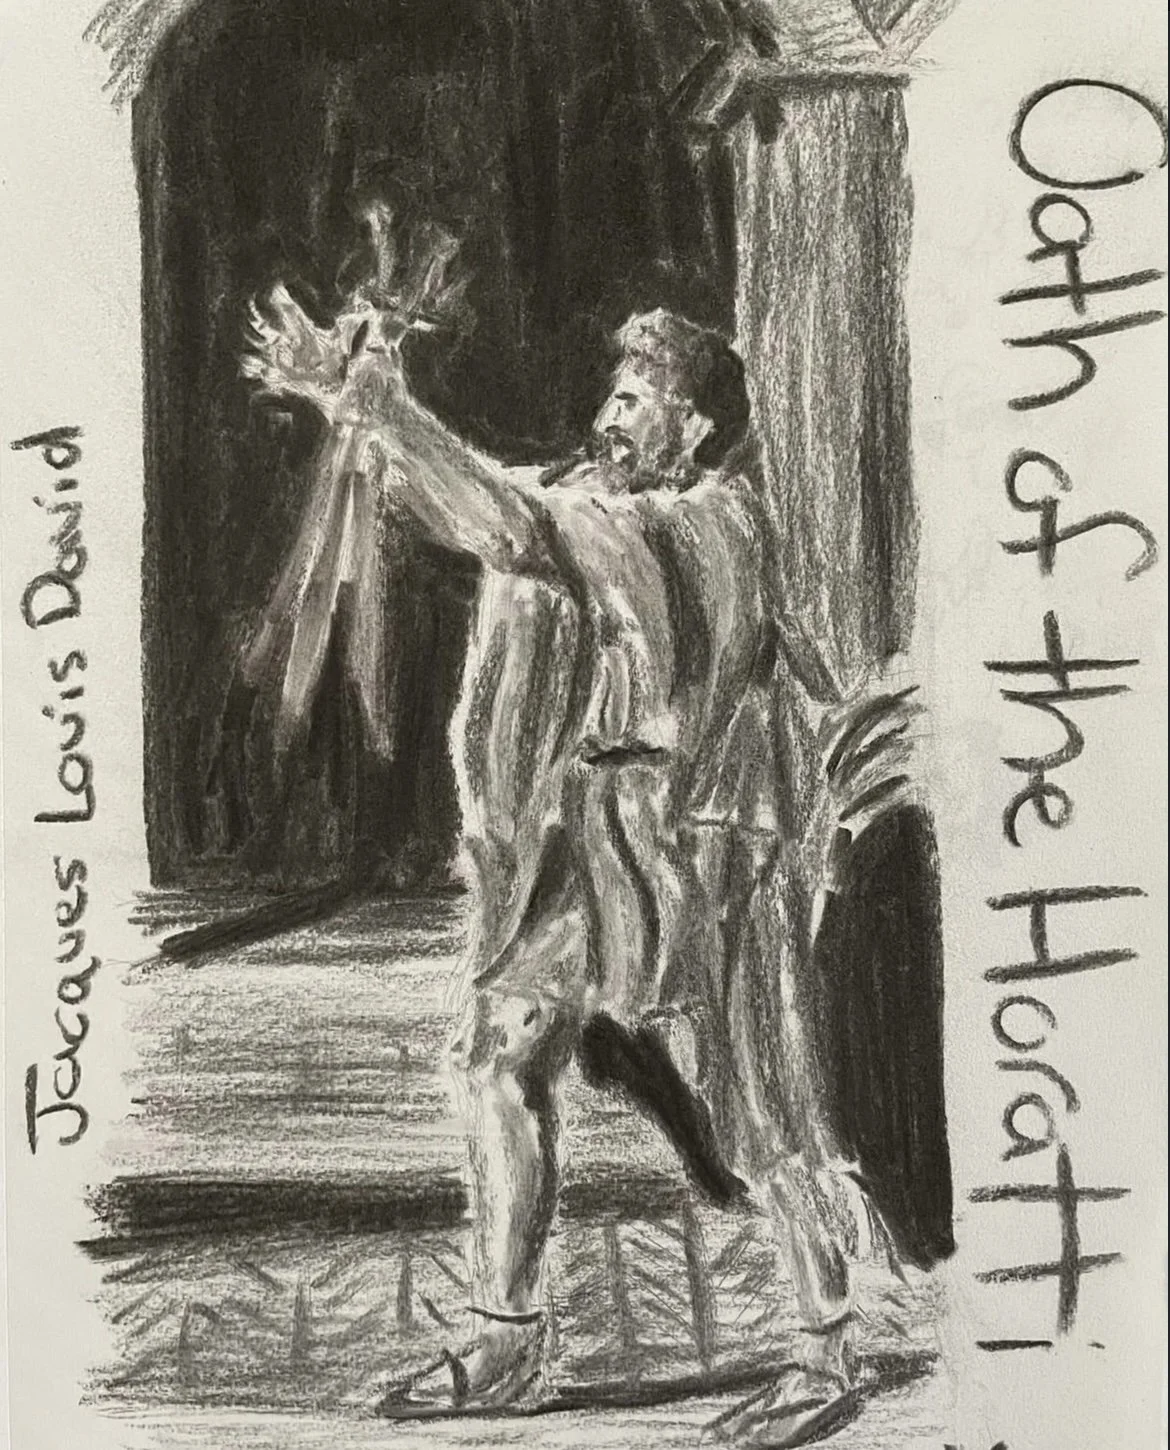 Oath of the Horatti
Jacques Louis David